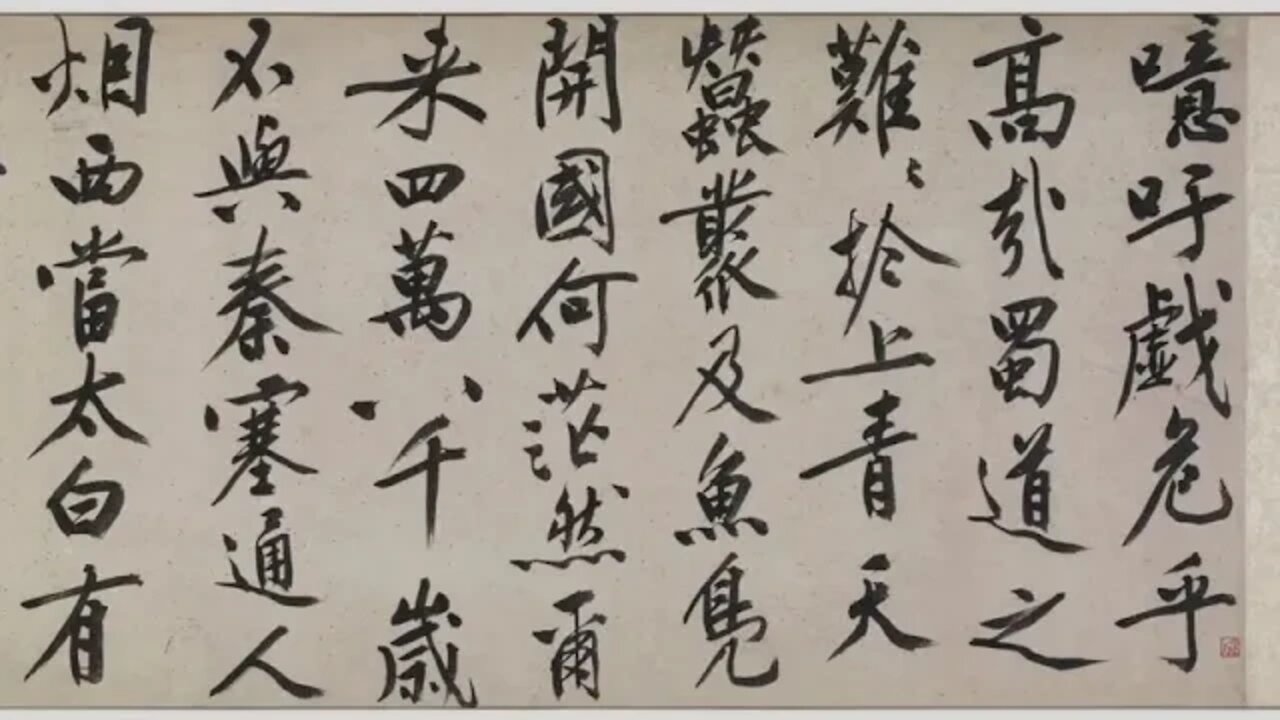 噫吁戯危乎
高哉蜀道之
難〻於上青天
蠶叢及魚鳧
開國何茫然爾
来四萬八千歲
不與秦塞通人
烟西當太白有